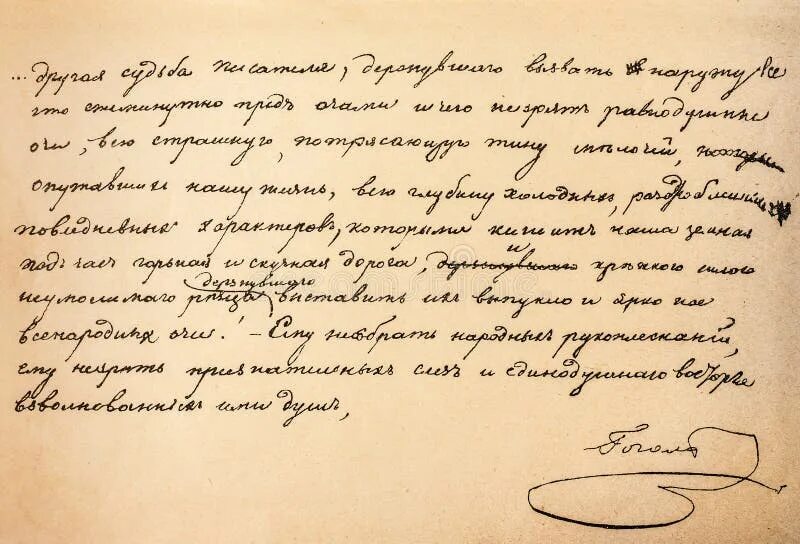 ... другая судьба писателя, дерзнувшаго вызвать наружу все
что ежеминутно предъ очами и чего незрятъ равнодушные
очи, всю страшную, потрясающую тину мѣлочей,
опутавшихъ нашу жизнь, всю глубину холодныхъ, раздробленныхъ
повседневныхъ характеровъ, которыми кишитъ наша земная
подъ часъ горькая и скучная дорога, дерзнувшаго и крѣпкою силою
дерзнувшаго
неумолимаго рѣзца выставить ихъ выпукло и ярко на
всенародныя очи! — Ему несобрать народныхъ рукоплесканій,
ему незрѣть признательныхъ слезъ и единодушнаго восторга
взволнованныхъ ими душъ,
Гоголь